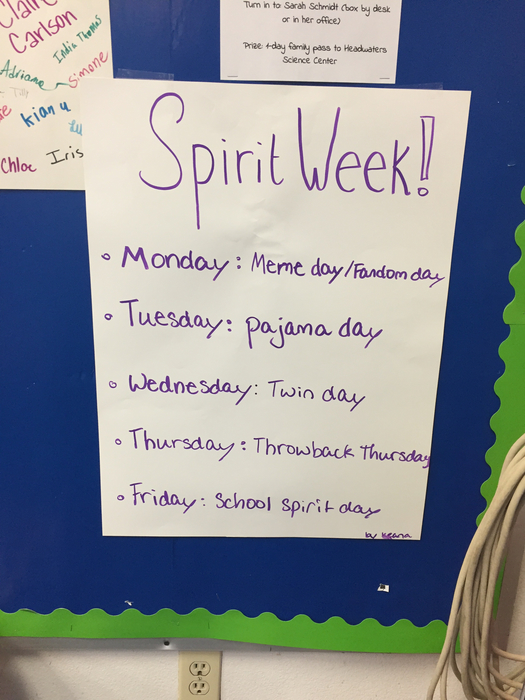 Claire
Carlson
India Thomas
Adriane
Simone
Tilly
kian u
Lu
Chloe
Iris
Turn in to Sarah Schmidt (box by desk
or in her office)
Prize: 1-day family pass to Headwaters
Science Center
Spirit Week!
Monday: Meme day/Fandom day
Tuesday: pajama day
Wednesday: Twin day
Thursday: Throwback Thursday
Friday: School spirit day
by